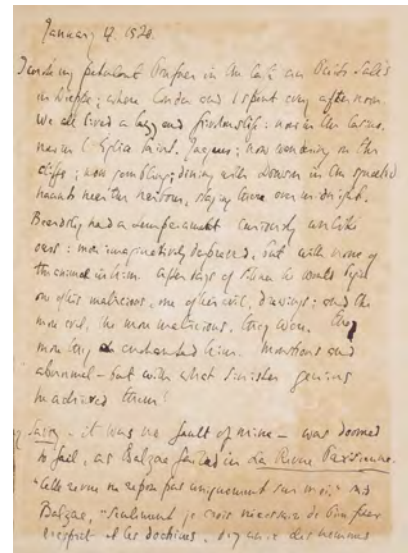 January 17. 1920.
I wrote my petulant Preface in the Café aux Petits Salles
in Dieppe; where Conder and I spent every afternoon.
We all lived a lazy and frivolous life: now in the Casino,
now in l'Eglise Saint. Jaques; now wandering on the
cliffs; now gambling; dining with Dowson in the squalid
haunts near the harbour, staying there over midnight.
Beardsley had a temperament curiously unlike
ours: more imaginatively depraved, but with none of
the animal in him. After days of silence he would begin
one of his malicious, one of his evil, drawings; and the
more evil, the more malicious, they were, the
more they enchanted him. Monstrous and
abnormal – but with what sinister genius
he achieved them!
My Savoy – it was no fault of mine – was doomed
to fail, as Balzac failed in La Revue Parisienne.
"Cette revue ne repose pas uniquement sur moi," said
Balzac, "seulement je crois nécessaire de bien faire
respect et les doctrines, d'y avoir des hommes